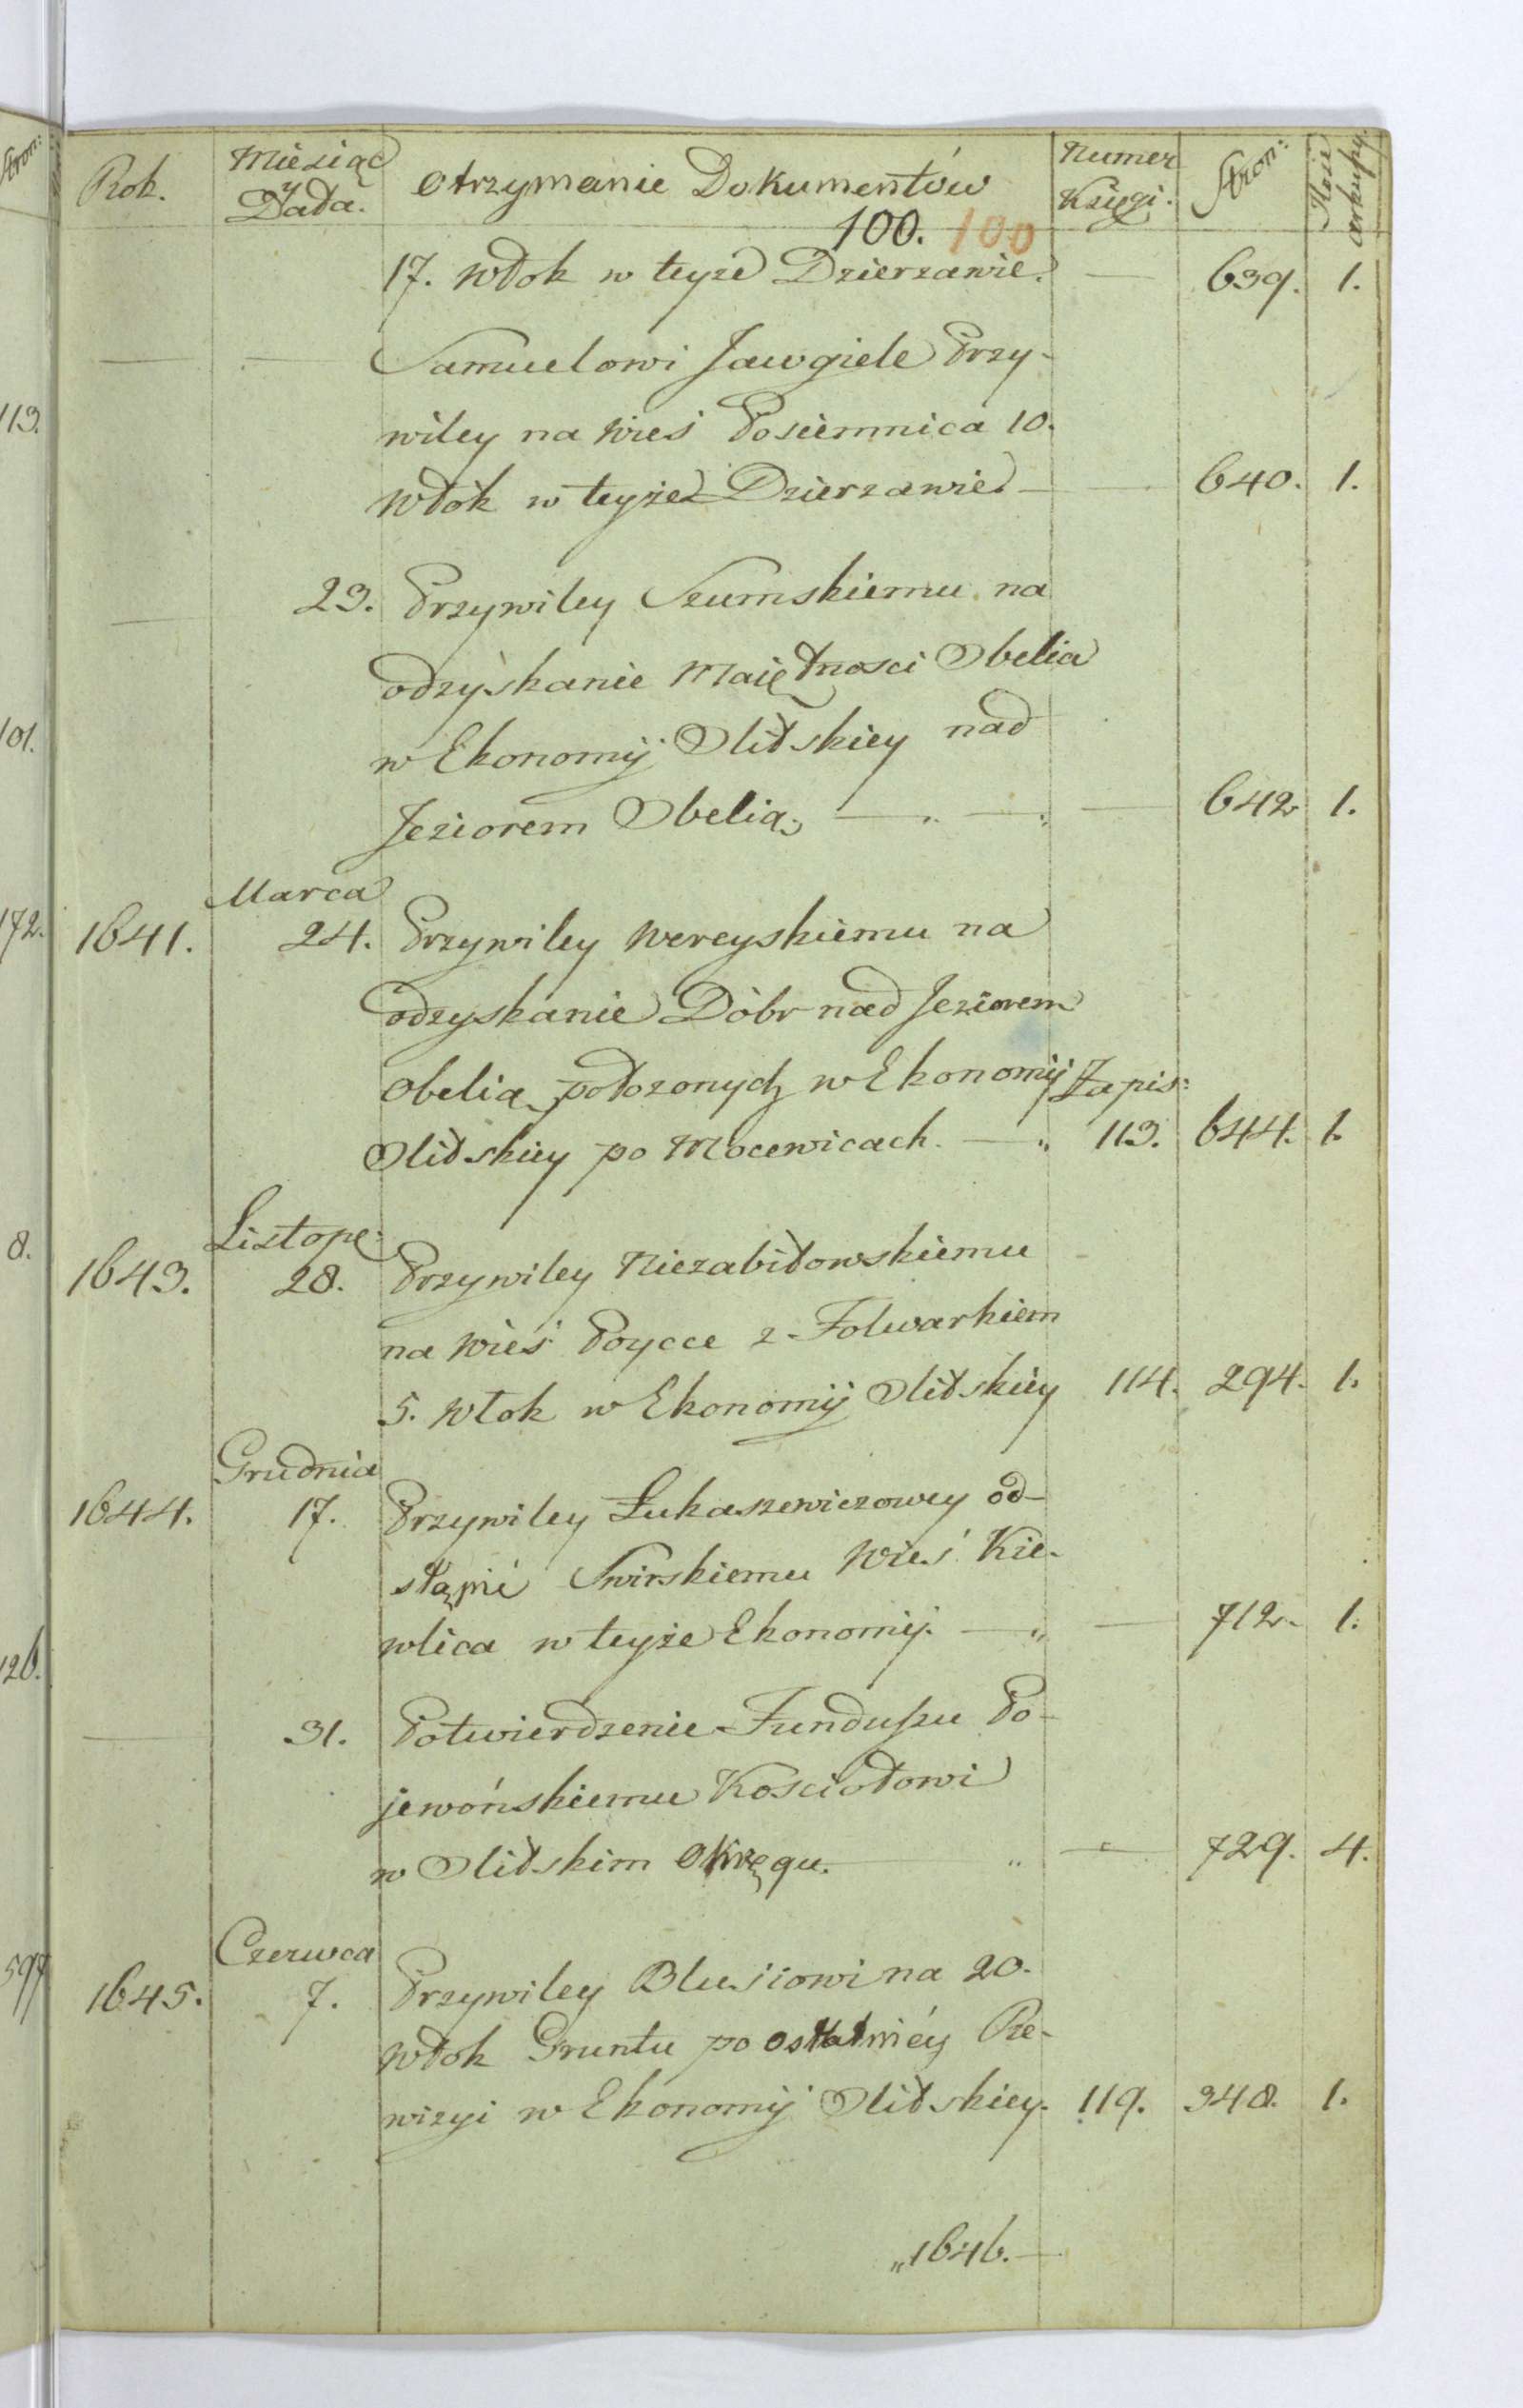 Rok. Miesiąc y Data. Otrzymanie Dokumentów Numer Księgi. Stron: Ilosć arkuszy.
100. 100
17. Włok w teyże Dzierzawie. — 639. 1.
— — Samuelowi Jawgiele Przy-
wiley na Wieś Posiemnica 10.
Włók w teyże Dzierzawie — — 640. 1.
— 23. Przywiley Szumskiemu na
odzyskanie Maiętnosci Obelia
w Ekonomij Olitskiey nad
Jeziorem Obelią — — — 642 1.
Marca
1641. 24. Przywiley Wereyskiemu na
odzyskanie Dóbr nad Jeziorem
Obelią położonych w Ekonomij Zapis:
Olitskiey po Mocewicach. — 113. 644. 1.
Listopa:
1643. 28. Przywiley Niezabitowskiemu
na Wieś Poycce z Folwarkiem
5. Włok w Ekonomij Olitskiey 114. 294. 1.
Grudnia
1644. 17. Przywiley Łukaszewiczowey od-
stąpić Swirskiemu Wieś Kie-
wlica w teyże Ekonomij. — — 712. 1.
— 31. Potwierdzenie Funduszu Po-
jewońskiemu Kosciołowi
w Olitskim Okręgu. — — 729. 4.
Czerwca
1645. 7. Przywiley Blusiowi na 20.
Włok Gruntu po ostatniéy Re-
wizyi w Ekonomij Olitskiey. 119. 348. 1.
„1646.—
Stron:
113.
101.
172.
8.
126.
597